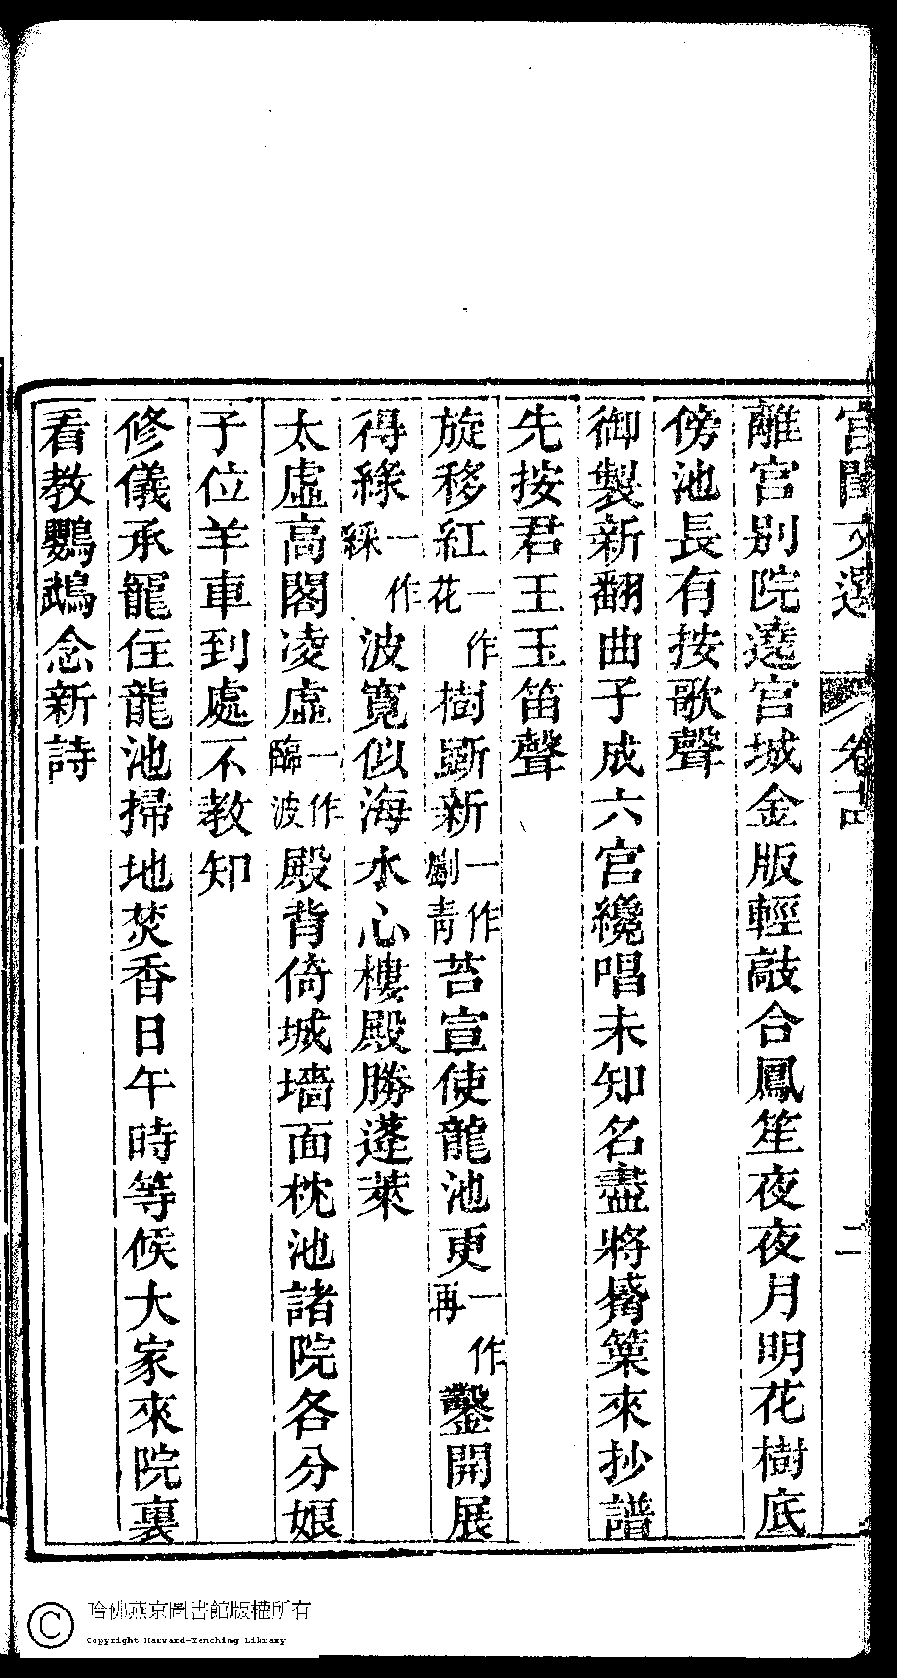 宮閨文選 卷十四 二
離宮別院遶宮城金版輕敲合鳳笙夜夜月明花樹底
傍池長有按歌聲
御製新翻曲子成六宮纔唱未知名盡將觱篥來抄譜
先按君王玉笛聲
旋移紅一作花樹斸新一作劚青苔宣使龍池更一作再鑿開展
得綠一作綵波寬似海水心樓殿勝蓬萊
太虛高閣凌虛一作臨波殿背倚城墻面枕池諸院各分娘
子位羊車到處不教知
修儀承寵住龍池掃地焚香日午時等候大家來院裏
看教鸚鵡念新詩
哈佛燕京圖書館版權所有
Copyright Harvard-Yenching Library